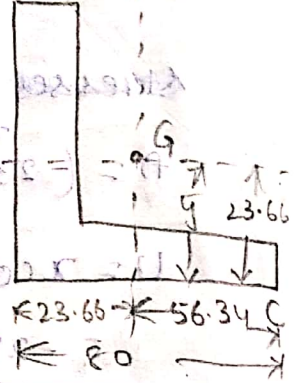 G
y 23.66
23.66 56.34 C
80